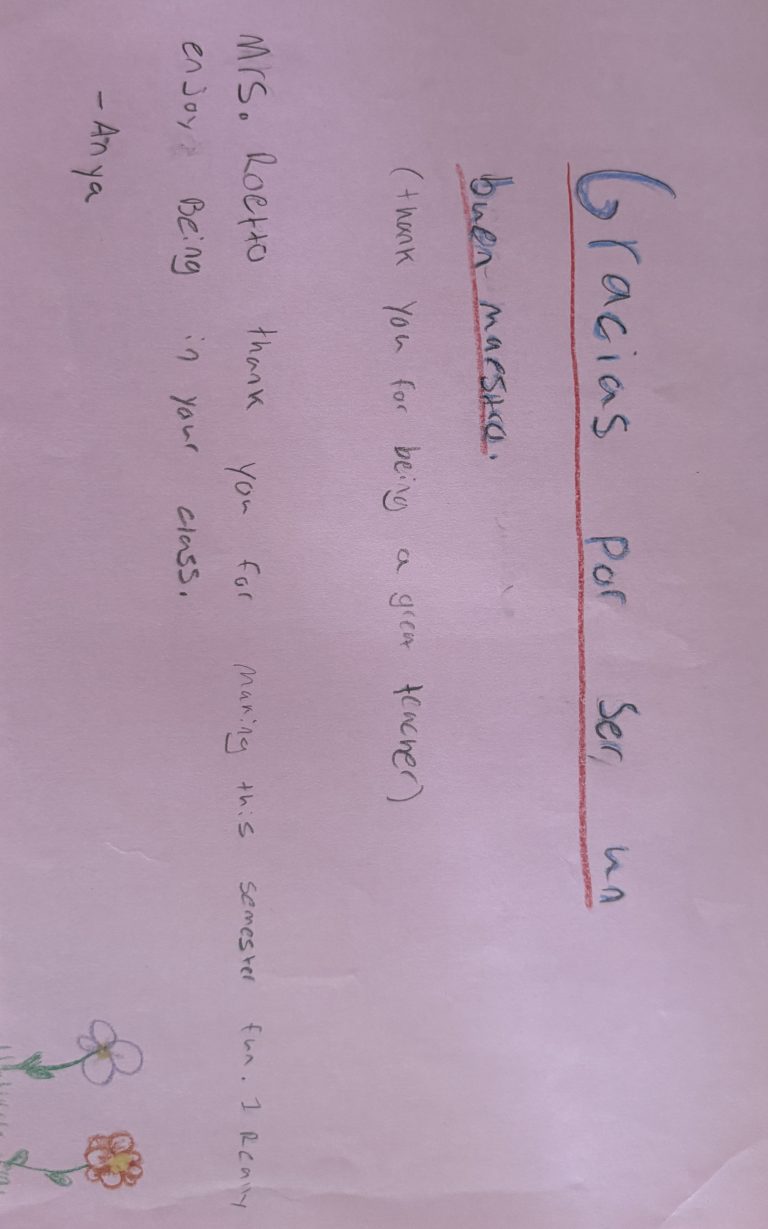 Gracias por ser un
buen maestro.
(thank you for being a great teacher)
Mrs. Roetto thank you for making this semester fun. I Really
enjoy Being in your class.
- Anya